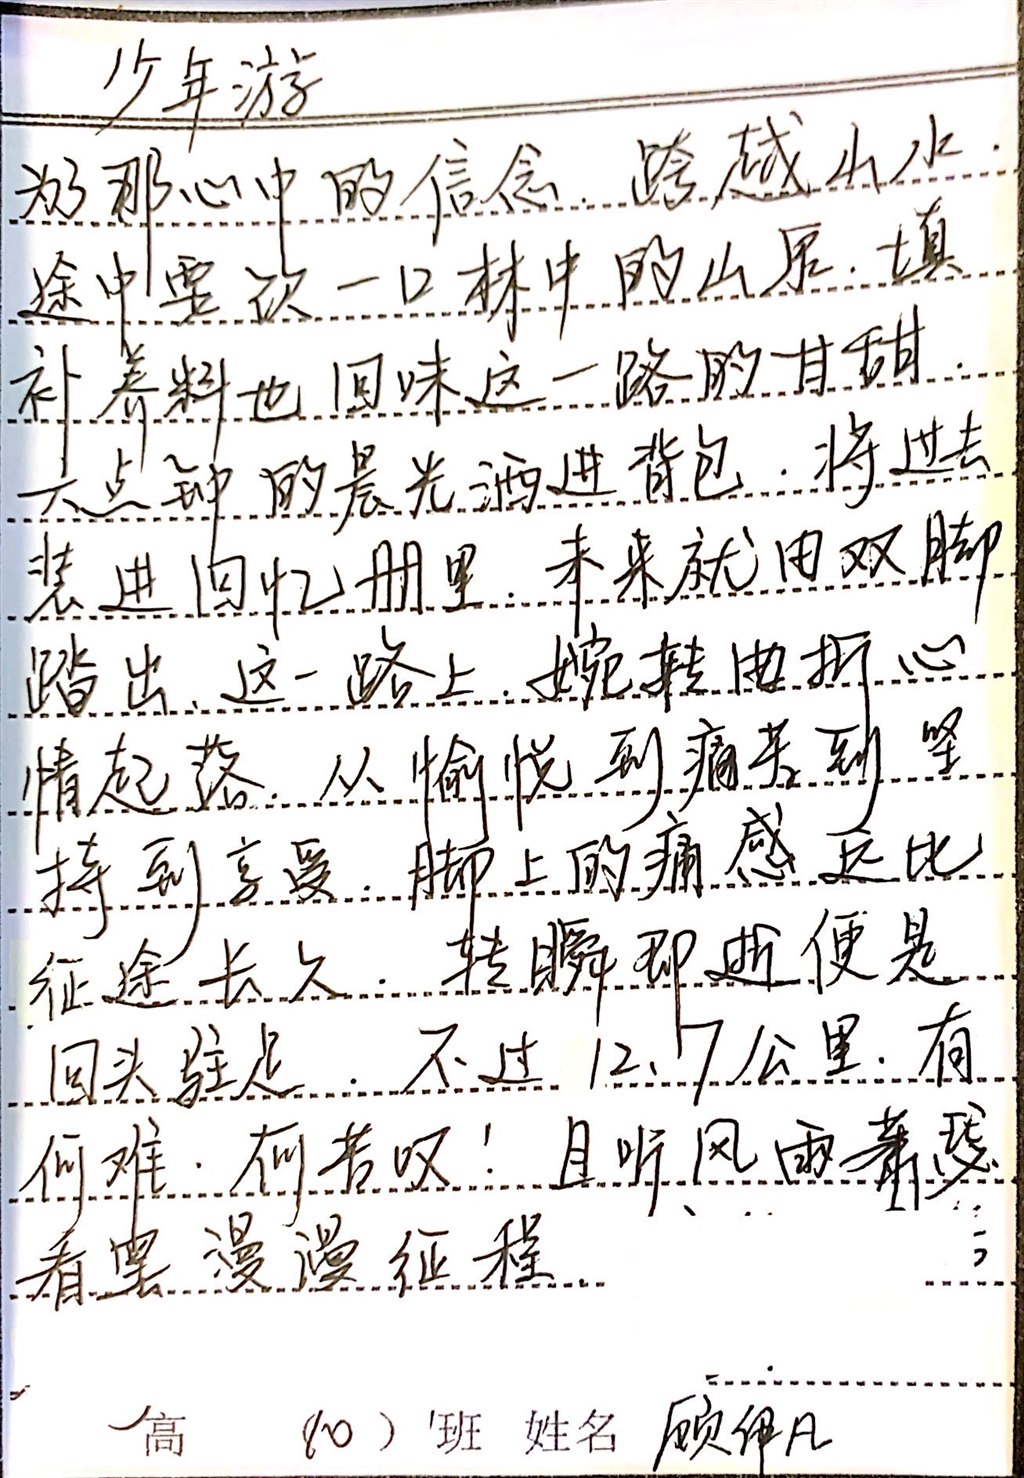 少年游
为那心中的信念、跨越山水.
途中要饮一口林中的山泉.填
补养料也回味这一路的甘甜.
六点钟的晨光洒进背包.将过去
装进回忆册里.未来就由双脚
踏出、这一路上.婉转曲折心
情起落.从愉悦到痛苦到坚
持到享受.脚上的痛感远比
征途长久.转瞬即逝便是
回头驻足.不过12.7公里.有
何难.有何苦叹!且听风雨萧瑟
看罢漫漫征程.
高 (10) 班 姓名 顾伊凡